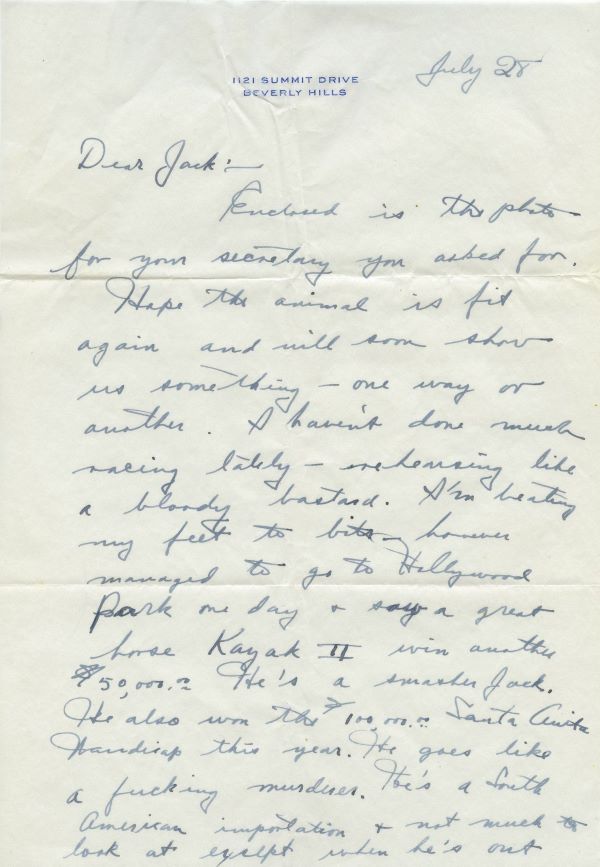 July 28
1121 SUMMIT DRIVE
BEVERLY HILLS
Dear Jack:—
Enclosed is the photo
for your secretary you asked for.
Hope the animal is fit
again and will soon show
us something – one way or
another. I haven't done much
racing lately – rehearsing like
a bloody bastard. I'm beating
my feet to bits – however
managed to go to Hollywood
Park one day + saw a great
horse Kayak II win another
$50,000.00 He's a smasher Jack.
He also won the $100,000.00 Santa Anita
Handicap this year. He goes like
a fucking murderer. He's a South
American importation + not much to
look at except when he's out